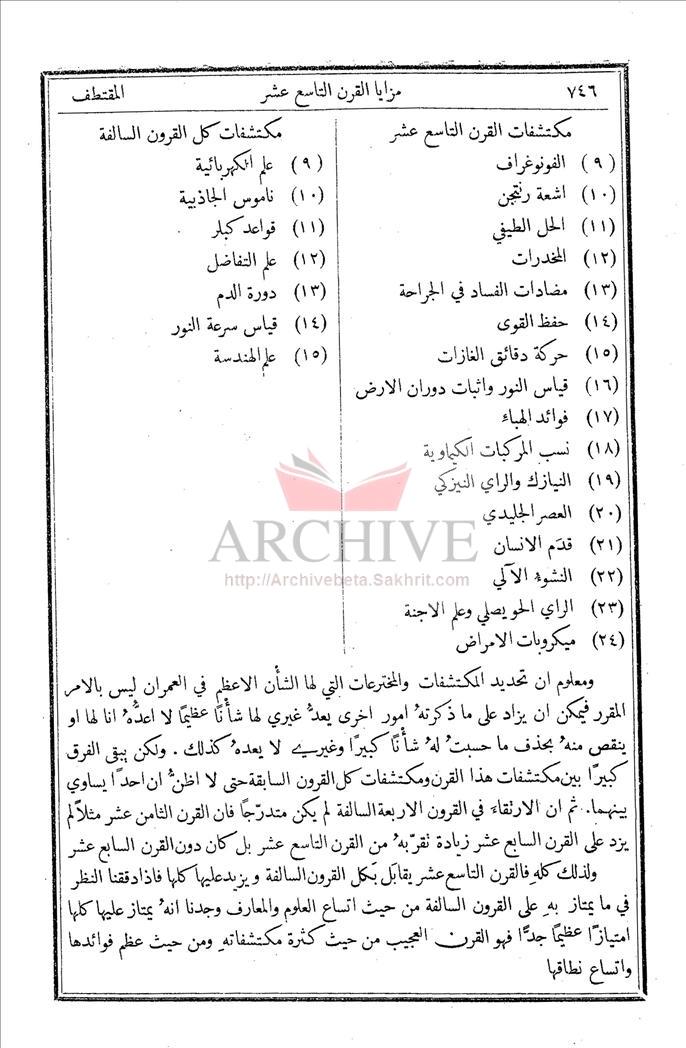 ٧٤٦ مزايا القرن التاسع عشر المقتطف
مكتشفات القرن التاسع عشر
(٩) الفونوغراف
(١٠) اشعة رنتجن
(١١) الحل الطيفي
(١٢) المخدرات
(١٣) مضادات الفساد في الجراحة
(١٤) حفظ القوى
(١٥) حركة دقائق الغازات
(١٦) قياس النور واثبات دوران الارض
(١٧) فوائد الهباء
(١٨) نسب المركبات الكيماوية
(١٩) النيازك والراي النيزكي
(٢٠) العصر الجليدي
(٢١) قدَم الانسان
(٢٢) النشوء الآلي
(٢٣) الراي الحويصلي وعلم الاجنة
(٢٤) ميكروبات الامراض
مكتشفات كل القرون السالفة
(٩) علم الكهربائية
(١٠) ناموس الجاذبية
(١١) قواعد كبلر
(١٢) علم التفاضل
(١٣) دورة الدم
(١٤) قياس سرعة النور
(١٥) علم الهندسة
ARCHIVE
http://Archivebeta.Sakhrit.com
ومعلوم ان تحديد المكتشفات والمخترعات التي لها الشأن الاعظم في العمران ليس بالامر
المقرر فيمكن ان يزاد على ما ذكرتهُ امور اخرى يعدُّ غيري لها شأنًا عظيمًا لا اعدُّهُ انا لها او
ينقص منهُ بحذف ما حسبتُ لهُ شأنًا كبيرًا وغيري لا يعدهُ كذلك . ولكن يبقى الفرق
كبيرًا بين مكتشفات هذا القرن ومكتشفات كل القرون السابقة حتى لا اظنُّ ان احدًا يساوي
بينهما. ثم ان الارتقاء في القرون الاربعة السالفة لم يكن متدرّجًا فان القرن الثامن عشر مثلاً لم
يزد على القرن السابع عشر زيادة نقرّبهُ من القرن التاسع عشر بل كان دون القرن السابع عشر
ولذلك كلهِ فالقرن التاسع عشر يقابَل بكل القرون السالفة ويزيد عليها كلها فاذا دققنا النظر
في ما يمتاز بهِ على القرون السالفة من حيث اتساع العلوم والمعارف وجدنا انهُ يمتاز عليها كلها
امتيازًا عظيمًا جدًّا فهو القرن العجيب من حيث كثرة مكتشفاتهِ ومن حيث عظم فوائدها
واتساع نطاقها